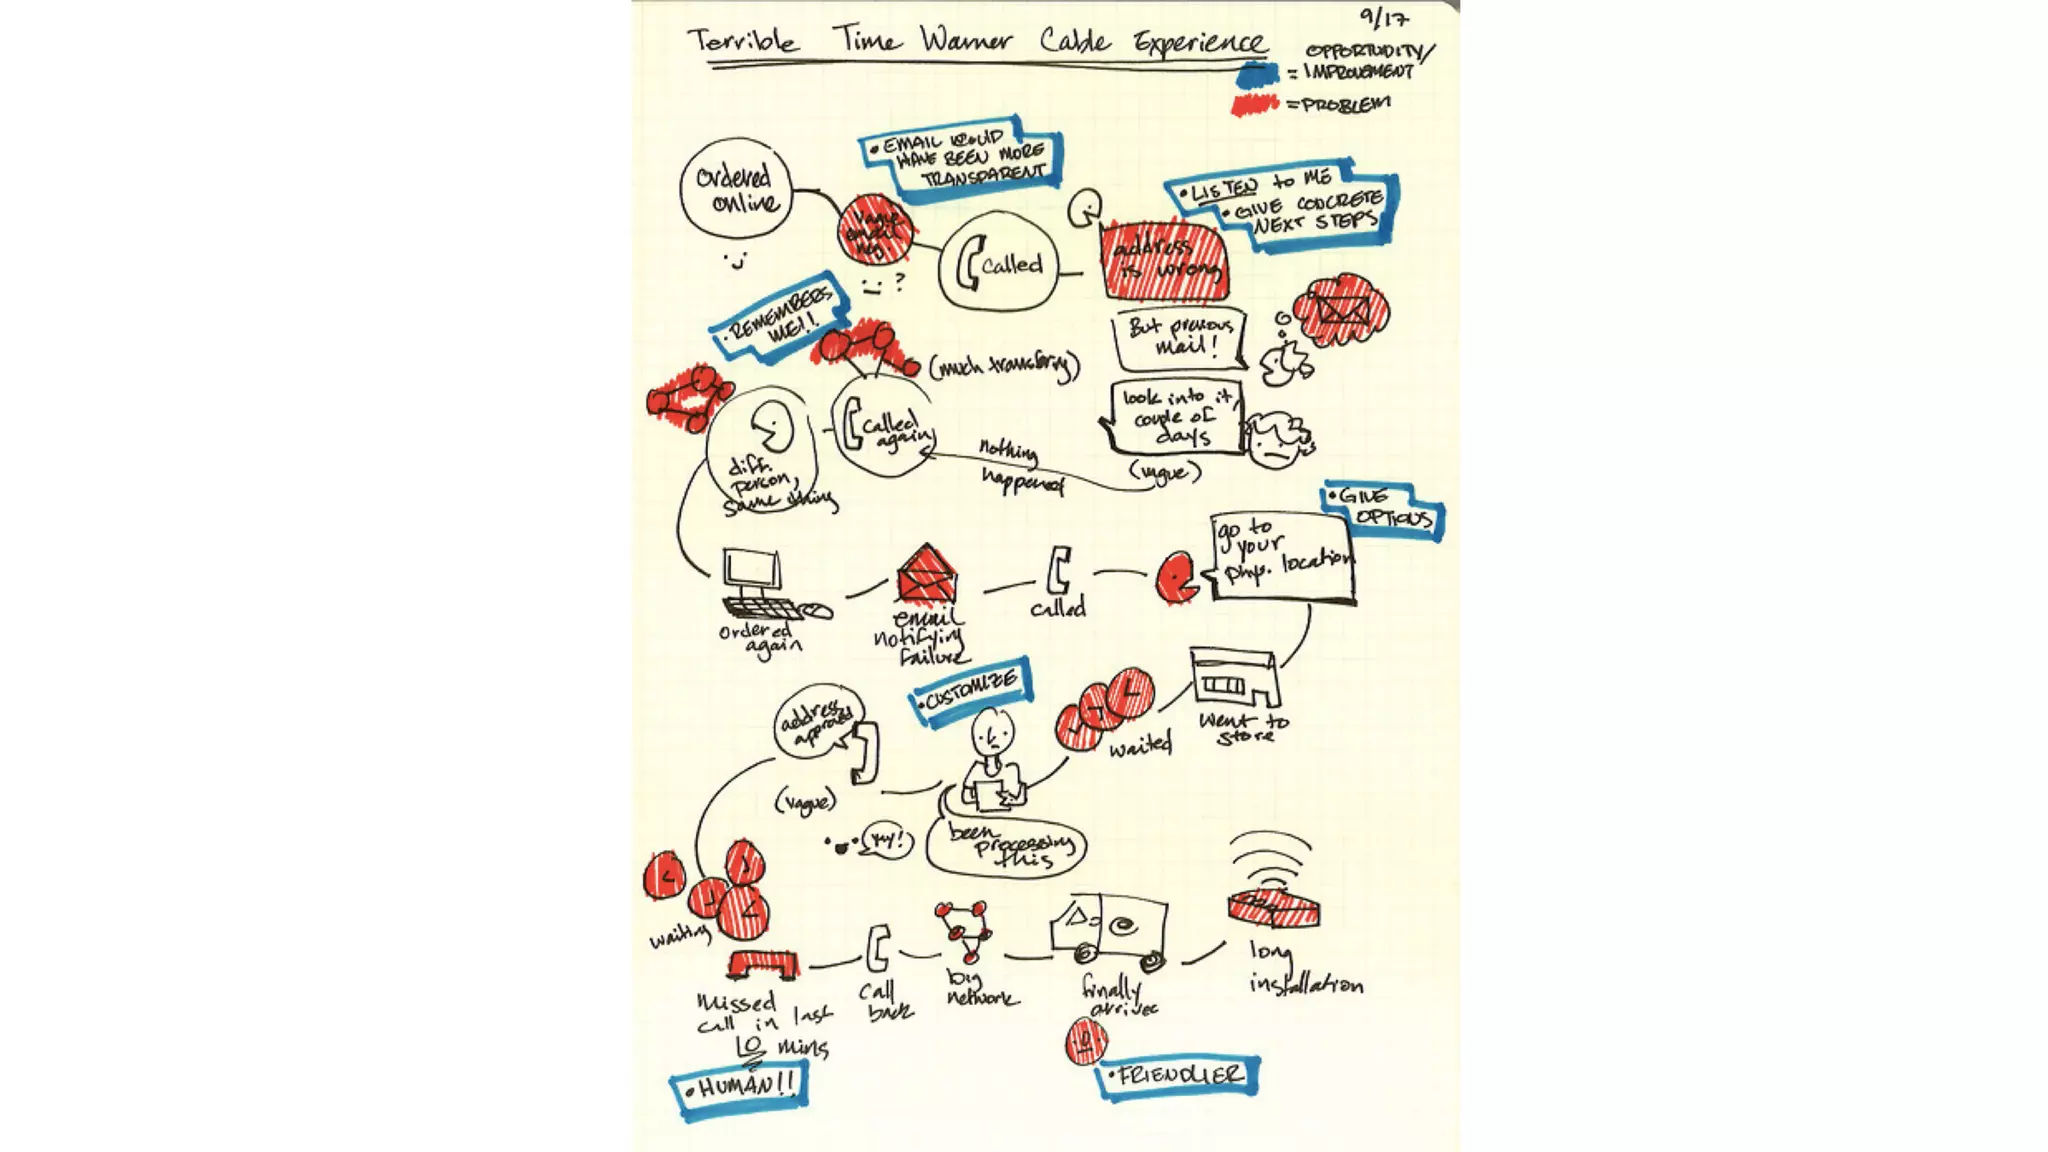 9/17
Terrible Time Warner Cable Experience
OPPORTUNITY/
= IMPROVEMENT
= PROBLEM
ordered
online
vague
email
msg
?
• EMAIL WOULD
HAVE BEEN MORE
TRANSPARENT
called
address
is wrong
• LISTEN to ME
• GIVE CONCRETE
NEXT STEPS
But previous
mail!
look into it,
couple of
days
(vague)
nothing
happened
(much transfering)
called
again
• REMEMBERS
ME!!
diff.
person,
same thing
ordered
again
email
notifying
failure
called
go to
your
phys. location
• GIVE
OPTIONS
went to
store
waited
• CUSTOMIZE
been
processing
this
yay!
address
approved
(vague)
waiting
missed
call in last
10 mins
• HUMAN!!
call
back
big
network
finally
arrives
• FRIENDLIER
long
installation